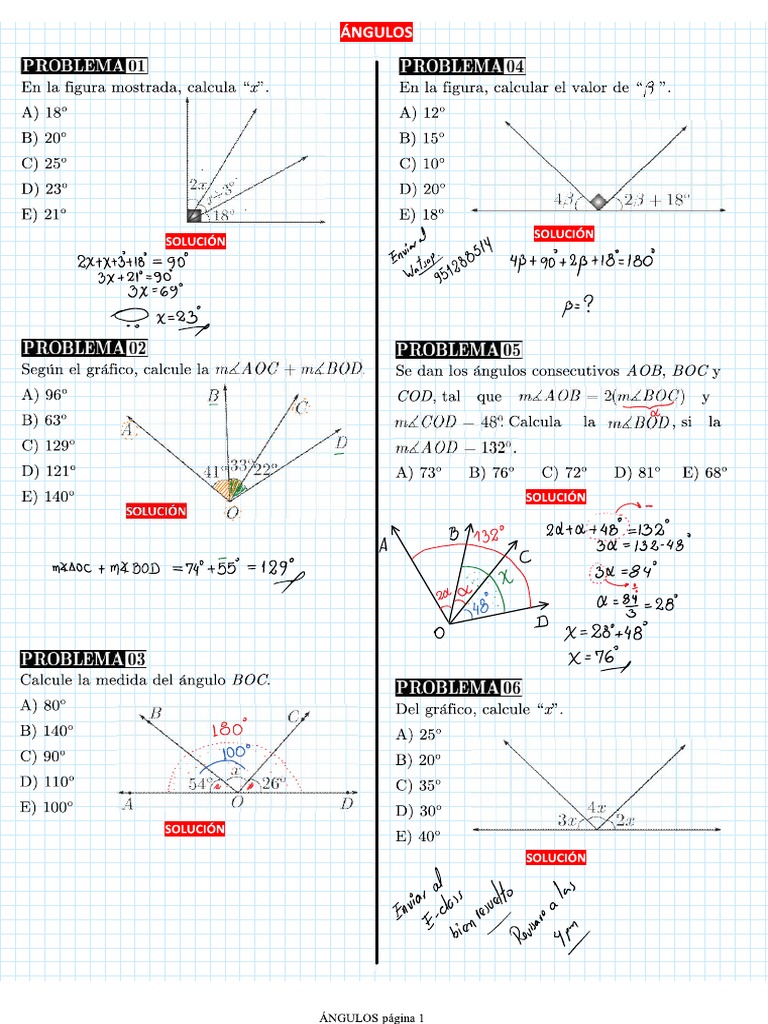 ÁNGULOS
PROBLEMA 01
En la figura mostrada, calcula “x”.
A) 18º
B) 20º
C) 25º
D) 23º
E) 21º
2x
x+3º
18º
SOLUCIÓN
2x+x+3°+18° = 90°
3x+21°=90°
3x=69°
x=23°
PROBLEMA 02
Según el gráfico, calcule la m∡AOC + m∡BOD.
A) 96º
B) 63º
C) 129º
D) 121º
E) 140º
A
B
C
D
41º
33º
22º
O
SOLUCIÓN
m∡AOC + m∡BOD = 74° + 55° = 129°
PROBLEMA 03
Calcule la medida del ángulo BOC.
A) 80º
B) 140º
C) 90º
D) 110º
E) 100º
B
C
180°
100°
54º
x
26º
A
O
D
SOLUCIÓN
PROBLEMA 04
En la figura, calcular el valor de “β”.
A) 12º
B) 15º
C) 10º
D) 20º
E) 18º
4β
2β + 18º
SOLUCIÓN
Enviar al
Watsap
951288514
4β + 90° + 2β + 18° = 180°
β = ?
PROBLEMA 05
Se dan los ángulos consecutivos AOB, BOC y
COD, tal que m∡AOB = 2(m∡BOC) y
α
m∡COD − 48º. Calcula la m∡BOD, si la
m∡AOD − 132º.
A) 73º B) 76º C) 72º D) 81º E) 68º
SOLUCIÓN
A
B
132°
C
2α
α
x
48°
O
D
2α+α+48° = 132°
3α = 132-48°
3α = 84°
α = 84/3 = 28°
x = 28°+48°
x = 76°
PROBLEMA 06
Del gráfico, calcule “x”.
A) 25º
B) 20º
C) 35º
D) 30º
E) 40º
3x
4x
2x
SOLUCIÓN
Enviar al
E-class
bien resuelto
Revisaro a las
4 pm
ÁNGULOS página 1